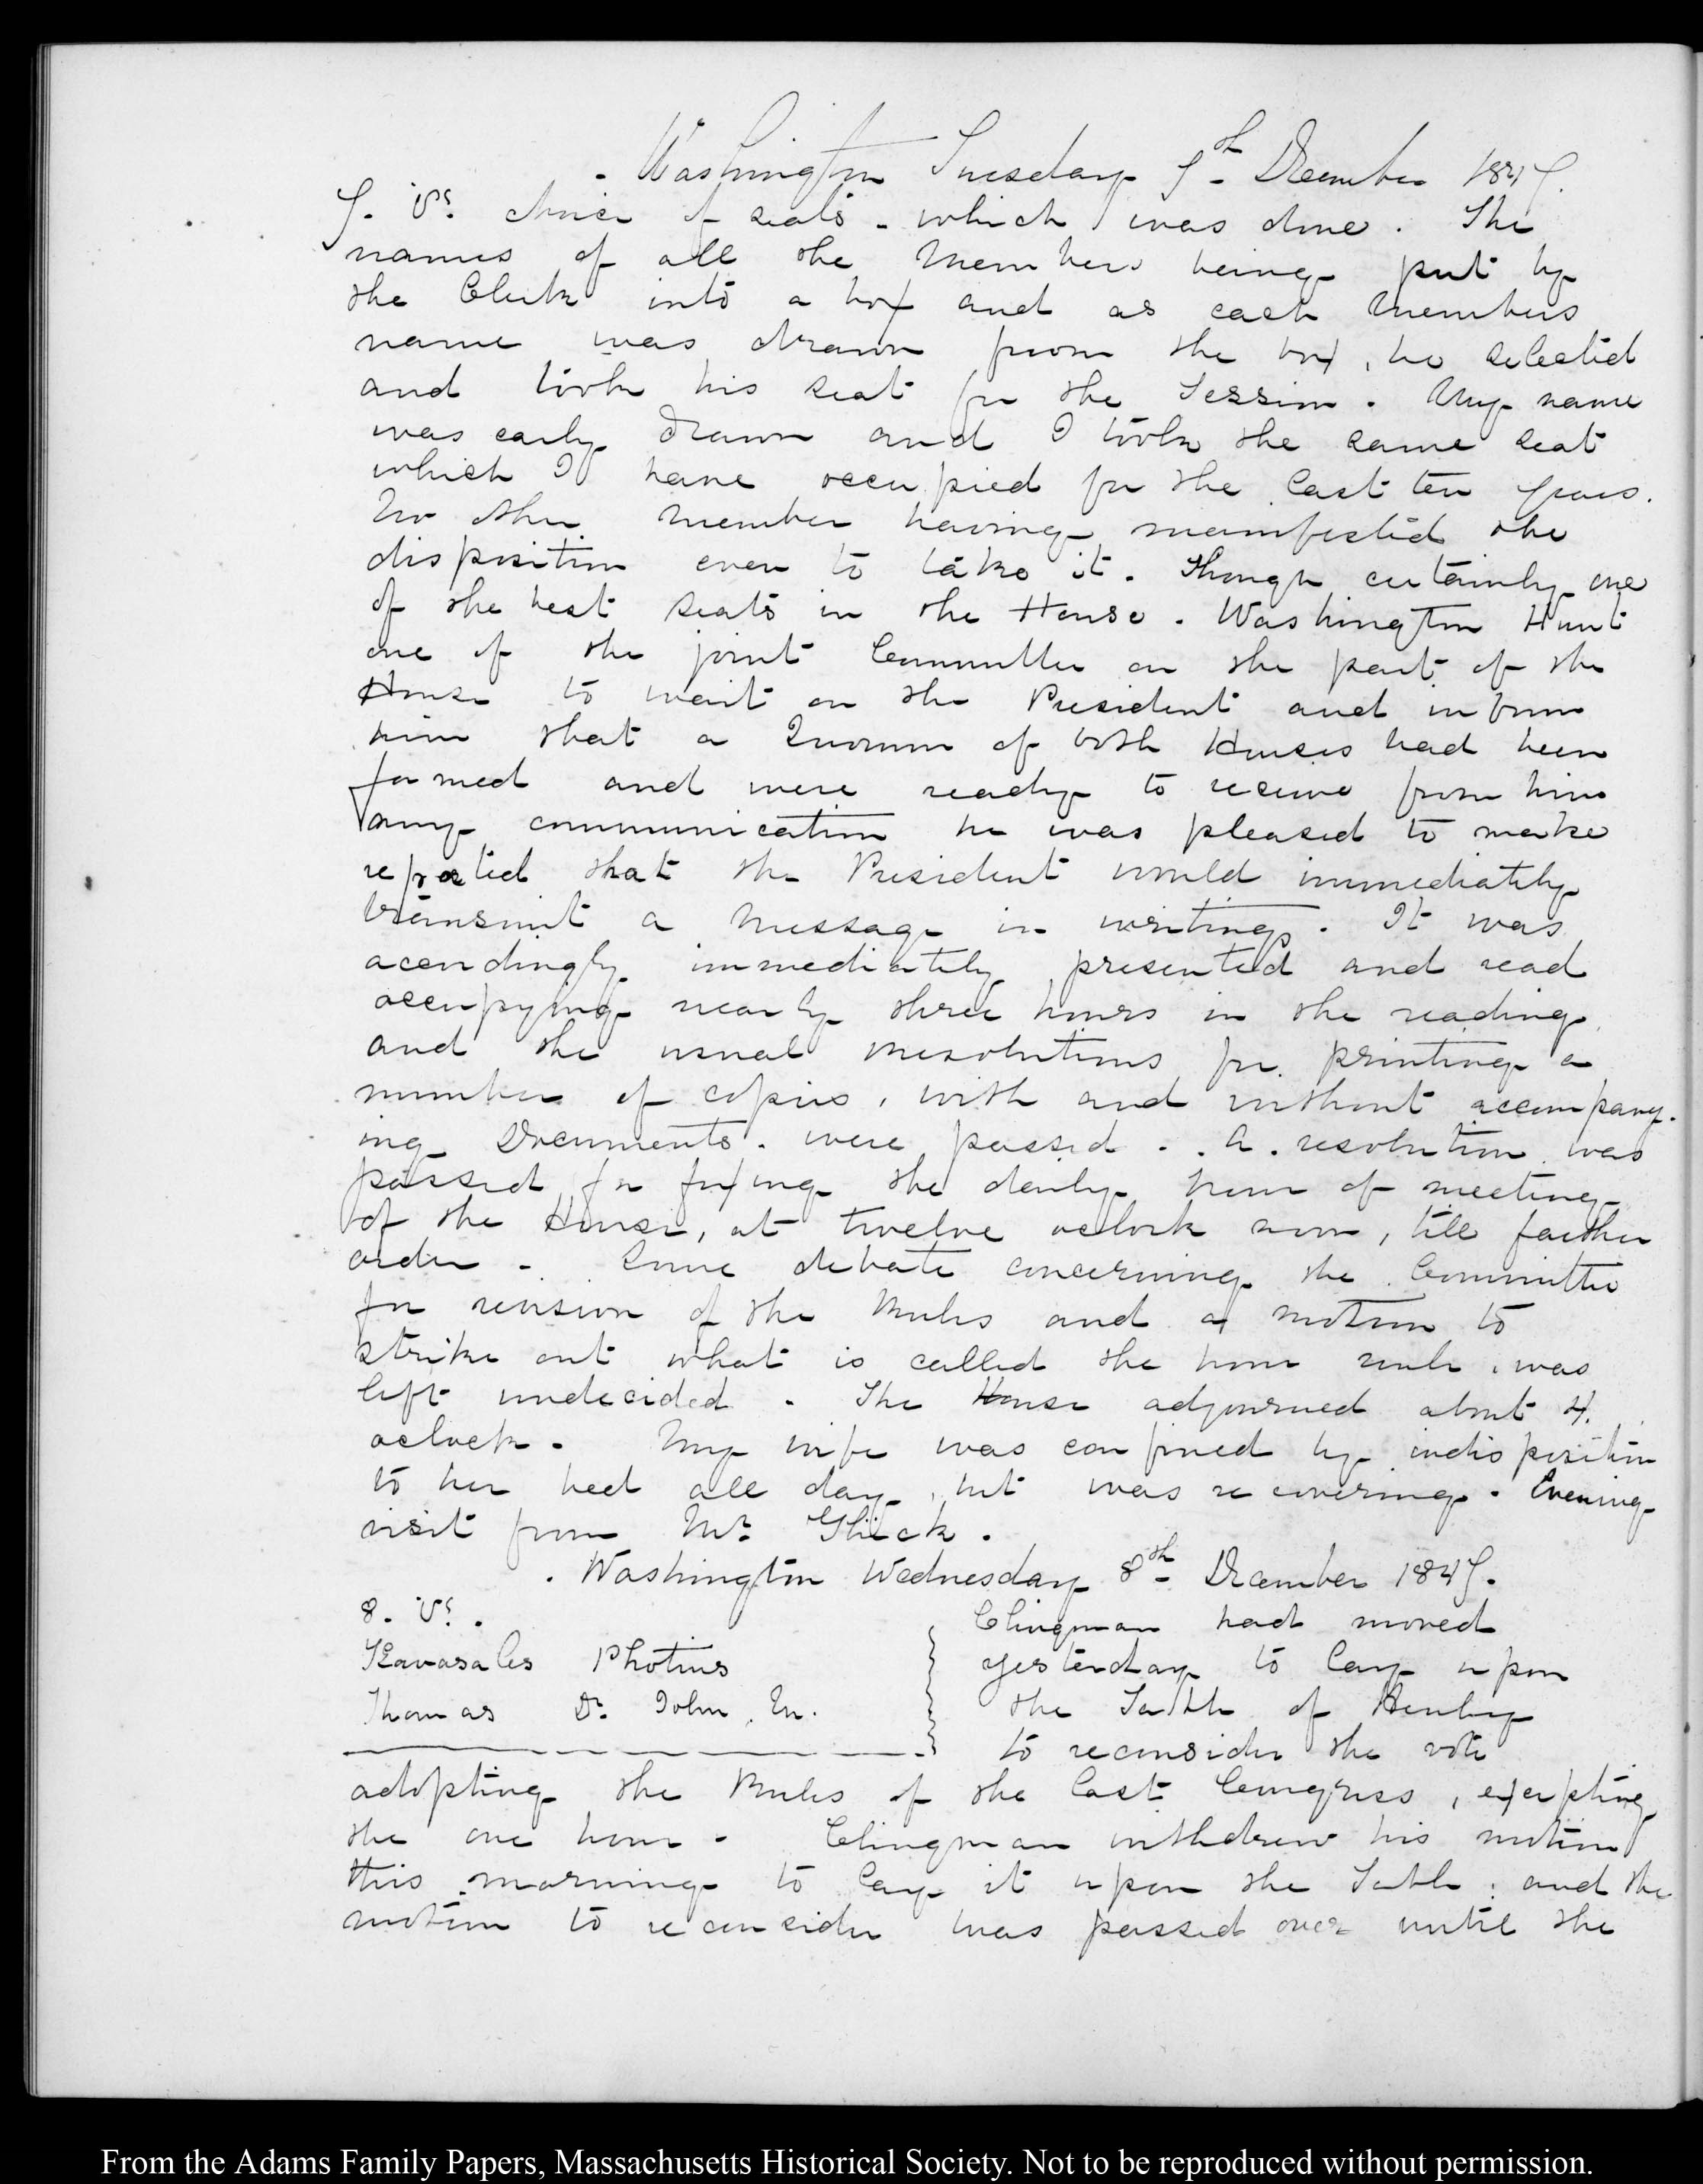 Washington Tuesday 7th December 1847.
7. V's. choice of seats - which was done. The
names of all the Members being put by
the Clerk into a box and as each members
name was drawn from the box, he selected
and took his seat for the Session. My name
was early drawn and I took the same seat
which I have occupied for the last ten years.
No other member having manifested the
disposition even to take it. though certainly one
of the best seats in the House. Washington Hunt
one of the joint Committee on the part of the
House to wait on the President and inform
him that a Quorum of both Houses had been
formed and were ready to receive from him
any communication he was pleased to make
reported that the President would immediately
transmit a message in writing. It was
accordingly immediately presented and read
occupying nearly three hours in the reading
and the usual resolutions for printing a
number of copies, with and without accompany-
ing Documents. were passed. A resolution was
passed for fixing the daily hour of meeting
of the House, at twelve oclock noon, till farther
order - Some debate concerning the Committee
for revision of the Rules and a motion to
strike out what is called the hour rule, was
left undecided. The House adjourned about 4.
oclock. My wife was confined by indisposition
to her bed all day, but was recovering. Evening
visit from Mr.
Washington Wednesday 8th December 1847.
8. V's.
Kavasales Photius
Thomas Dr. John M.
Clingman had moved
yesterday to lay upon
the Table of Henley
to reconsider the vote
adopting the Rules of the last Congress, excepting
the one hour - Clingman withdrew his motion
this morning to lay it upon the Table; and the
motion to reconsider was passed over until the
From the Adams Family Papers, Massachusetts Historical Society. Not to be reproduced without permission.